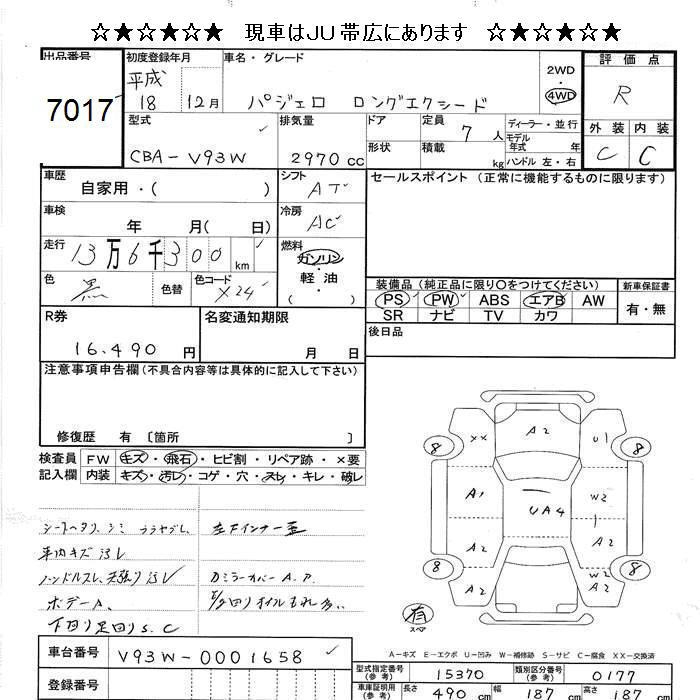 ☆★☆★☆★ 現車はJU帯広にあります ☆★☆★☆★
出品番号 7017
初度登録年月 平成 18 12月
車名・グレード パジェロ ロングエクシード
2WD・4WD
評価点 R
外装 C 内装 C
型式 CBA-V93W
排気量 2970 cc
ドア 形状
定員 7人 積載 kg
ディーラー・並行
モデル年式 年
ハンドル 左・右
車歴 自家用・( )
シフト AT
セールスポイント (正常に機能するものに限ります)
車検 年 月( 日)
冷房 AC
走行 13万6千300km
燃料 ガソリン・軽油 ( )
色 黒 色替 色コード X24
装備品 (純正品に限り○をつけてください)
新車保証書
PS PW ABS エアB AW
SR ナビ TV カワ
有・無
R券 16.490円
名変通知期限 月 日
後日品
注意事項申告欄 (不具合内容等は具体的に記入して下さい)
修復歴 有 〔箇所 〕
検査員記入欄
FW キズ・飛石・ヒビ割・リペア跡・×要
内装 キズ・汚レ・コゲ・穴・スレ・キレ・破レ
シートヘタリ、シミ
車内キズ汚レ
ハンドルスレ、天張り汚レ
ドミラーカバーA.P.
ボデーA、
下回り足回りS.C
8 XX A2 U1 8
A1 W2
UA4
A2 A2
8 A2 A2 W2 A2 8
有 スペア
A-キズ E-エクボ U-凹み W-補修跡 S-サビ C-腐食 XX-交換済
車台番号 V93W-0001658
型式指定番号 (参考) 15370 類別区分番号 (参考) 0177
登録番号
車庫証明用 (参考) 長さ 490 cm 幅 187 cm 高さ 187 cm